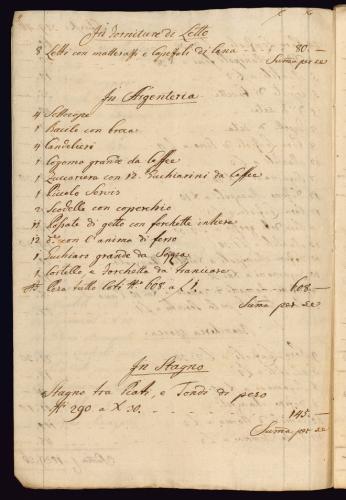 In Forniture di Letto
8 Letti con matterassi e Capezali di lana 80.—
Suma per se
In Argenteria
4 Sottocope
1 Bacile con broca
4 Candelieri
1 Cogoma grande da Caffee
1 Zuccariera con 12. Cuchiarini da Caffee
1 Piccolo Servis
2 Scodelle con coperchio
11 Possate di getto con forchette intiere
12 d.e con l'anima di ferro
1 Cuchiaro grande da Soppa
1 Cortello, e Forchetta da trinciare
Pesa tutto Loti N.o 608 a £ 1. 608.—
Suma per se
In Stagno
Stagno tra Piati, e Tondi di peso
℔ 290 a X 30. - - - - - 145.—
Suma per se